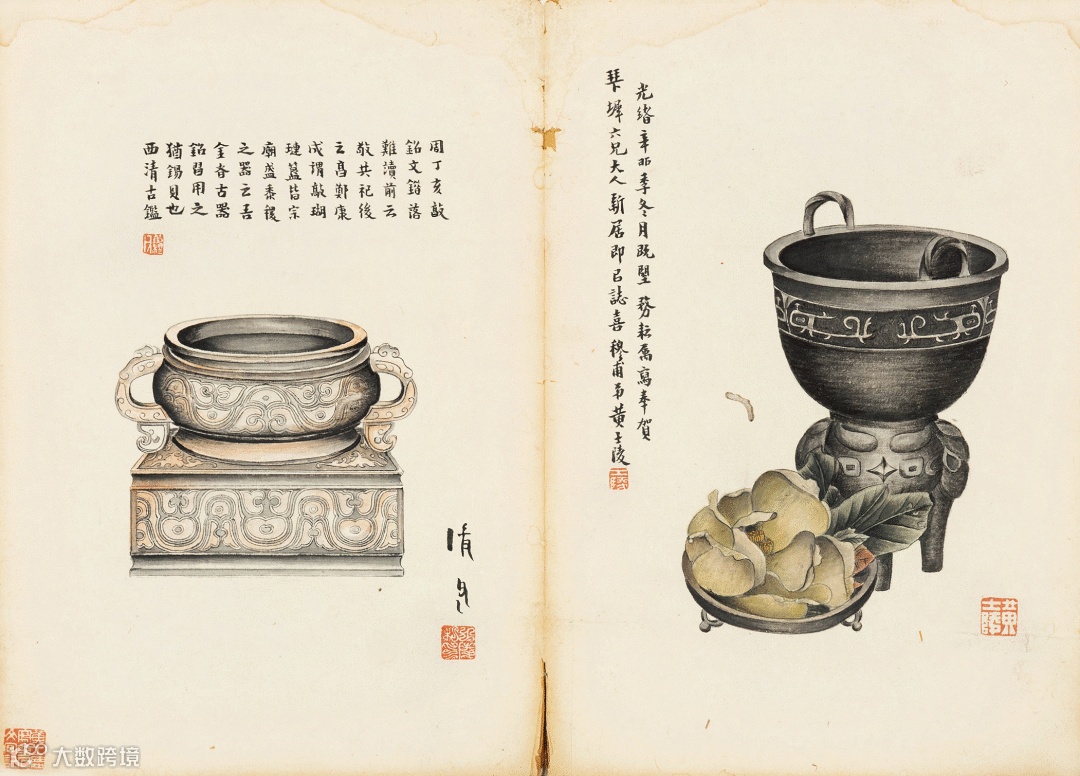 光緒辛卯季冬月既朢 務耘屬寫奉賀
琹墀六兄大人新居即已誌喜 穆甫弟黃士陵
士陵
黃士陵
周丁亥敦
銘文錯落
難讀前云
敬共祀後
云亯鄭康
成謂敦瑚
璉簋皆宗
廟盛黍稷
之器云吉
金者古器
銘習用之
猶錫貝也
西清古鑑
大数跨境